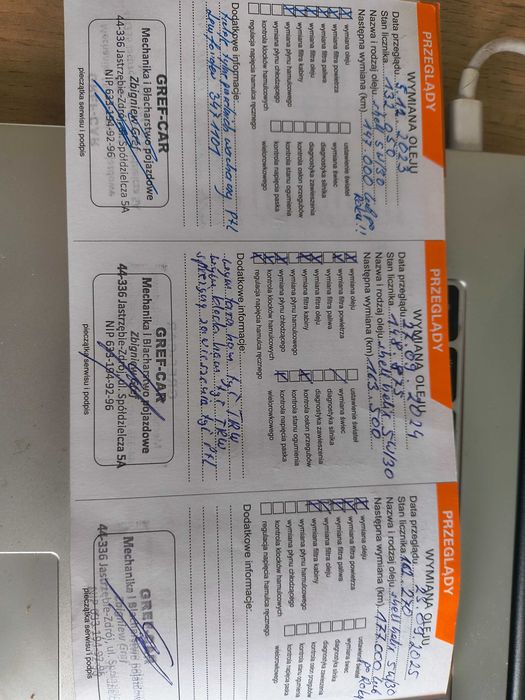 PRZEGLĄDY
WYMIANA OLEJU
Data przeglądu 12.2023
Stan licznika
Nazwa i rodzaj oleju shell 5W30
Następna wymiana (km) 147 000 lub po
Roku!!
wymiana oleju ustawienie świateł
wymiana filtra powietrza wymiana świec
wymiana filtra paliwa diagnostyka silnika
wymiana filtra oleju diagnostyka zawieszenia
wymiana filtra kabiny kontrola osłon przegubów
wymiana płynu hamulcowego kontrola stanu ogumienia
wymiana płynu chłodzącego kontrola napięcia paska
kontrola klocków hamulcowych wielorowkowego
regulacja napięcia hamulca ręcznego
Dodatkowe informacje:
przednich wahaczy P+L
GREF-CAR
Mechanika i Blacharstwo Pojazdowe
Zbigniew Gref
44-336 Jastrzębie-Zdrój, ul. Spółdzielcza 5A
NIP 633-134-92-96
pieczątka serwisu i podpis
PRZEGLĄDY
WYMIANA OLEJU
Data przeglądu 09 2024
Stan licznika 148 875
Nazwa i rodzaj oleju shell helix 5W/30
Następna wymiana (km) 163 500
wymiana oleju ustawienie świateł
wymiana filtra powietrza wymiana świec
wymiana filtra paliwa diagnostyka silnika
wymiana filtra oleju diagnostyka zawieszenia
wymiana filtra kabiny kontrola osłon przegubów
wymiana płynu hamulcowego kontrola stanu ogumienia
wymiana płynu chłodzącego kontrola napięcia paska
kontrola klocków hamulcowych wielorowkowego
regulacja napięcia hamulca ręcznego
Dodatkowe informacje:
wym tarcz ham tył TRW
wym klocki ham tył TRW
sprężyny zawieszenia tył P+L
GREF-CAR
Mechanika i Blacharstwo Pojazdowe
Zbigniew Gref
44-336 Jastrzębie-Zdrój, ul. Spółdzielcza 5A
NIP 633-134-92-96
pieczątka serwisu i podpis
PRZEGLĄDY
WYMIANA OLEJU
Data przeglądu 09 2025
Stan licznika
Nazwa i rodzaj oleju shell helix 5W30
Następna wymiana (km) 177.000 lub
po Roku
wymiana oleju ustawienie świateł
wymiana filtra powietrza wymiana świec
wymiana filtra paliwa diagnostyka silnika
wymiana filtra oleju diagnostyka zawieszenia
wymiana filtra kabiny kontrola osłon przegubów
wymiana płynu hamulcowego kontrola stanu ogumienia
wymiana płynu chłodzącego kontrola napięcia paska
kontrola klocków hamulcowych wielorowkowego
regulacja napięcia hamulca ręcznego
Dodatkowe informacje:
GREF-CAR
Mechanika i Blacharstwo Pojazdowe
Zbigniew Gref
44-336 Jastrzębie-Zdrój, ul. Spółdzielcza
pieczątka serwisu i podpis